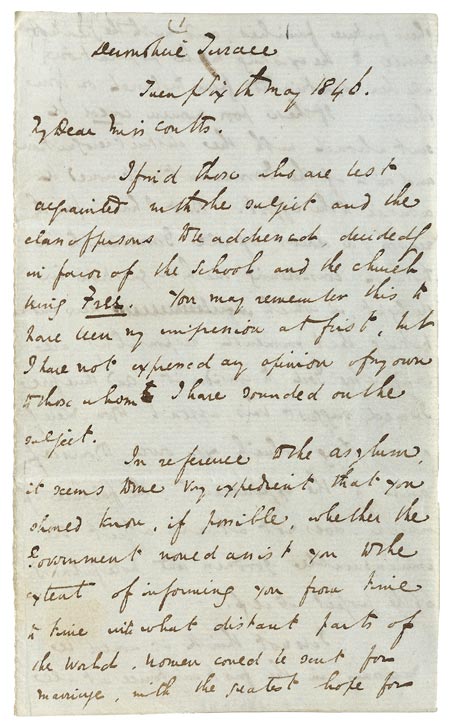 Devonshire Terrace
Twenty Sixth May 1846.
My Dear Miss Coutts.
I find those who are best
acquainted with the subject and the
class of persons to be addressed, decidedly
in favor of the School and the Church
being Free. You may remember this to
have been my impression at first, but
I have not expressed any opinion of my own
to those whom I have sounded on the
subject.
In reference to the asylum,
it seems to me very expedient that you
should know, if possible, whether the
Government would assist you to the
extent of informing you from time
to time into what distant parts of
the World, women could be sent for
marriage, with the greatest hope for